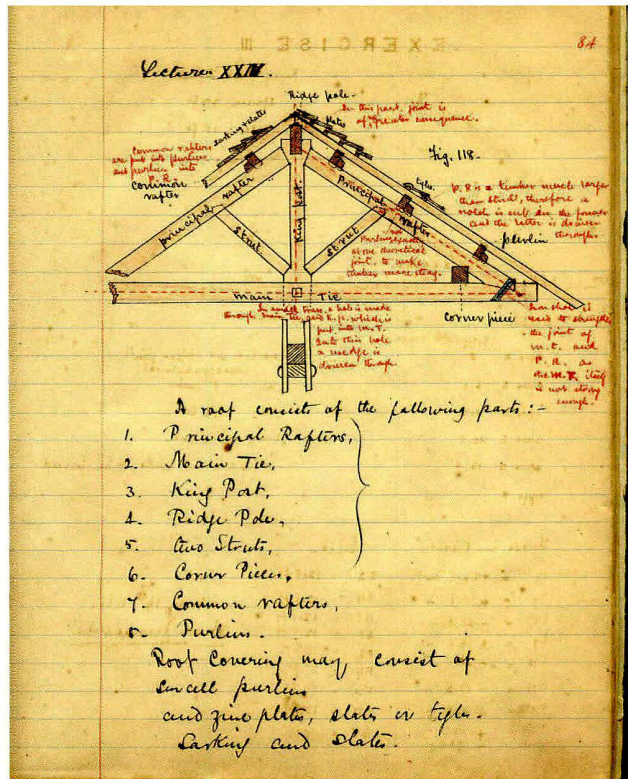 EXERCISE III
84
Lecture XXIV.
Ridge pole.
In this part, joint is
of greater consequence.
Slates
Sarking slates
Fig. 118.
Common rafters
are put into purlins
and purlins into
P. R.
Common
rafter
principal rafter
King Post.
Principal rafter
Tyles
P. R is a timber much larger
than strut, therefore a
notch is cut in the former
and the latter is driven
through.
purlin
Strut
Strut
not
Purlins
at the theoretical
joint, to make
timber more strong.
main Tie
Corner piece
In small truss, a hole is made
through main tie and K. p. which is
put into M. T.
Into this hole
a wedge is
driven through.
Iron strap is
used to strengthen
the joint of
m. t. and
P. R. as
the M. T. itself
is not strong
enough.
A roof consists of the following parts :-
1. Principal Rafters,
2. Main Tie,
3. King Post,
4. Ridge Pole,
5. two Struts,
6. Corner Pieces,
7. Common rafters,
8. Purlins.
Roof Covering may consist of
small purlins
and zinc plates, slates or tyles.
Sarking and slates.